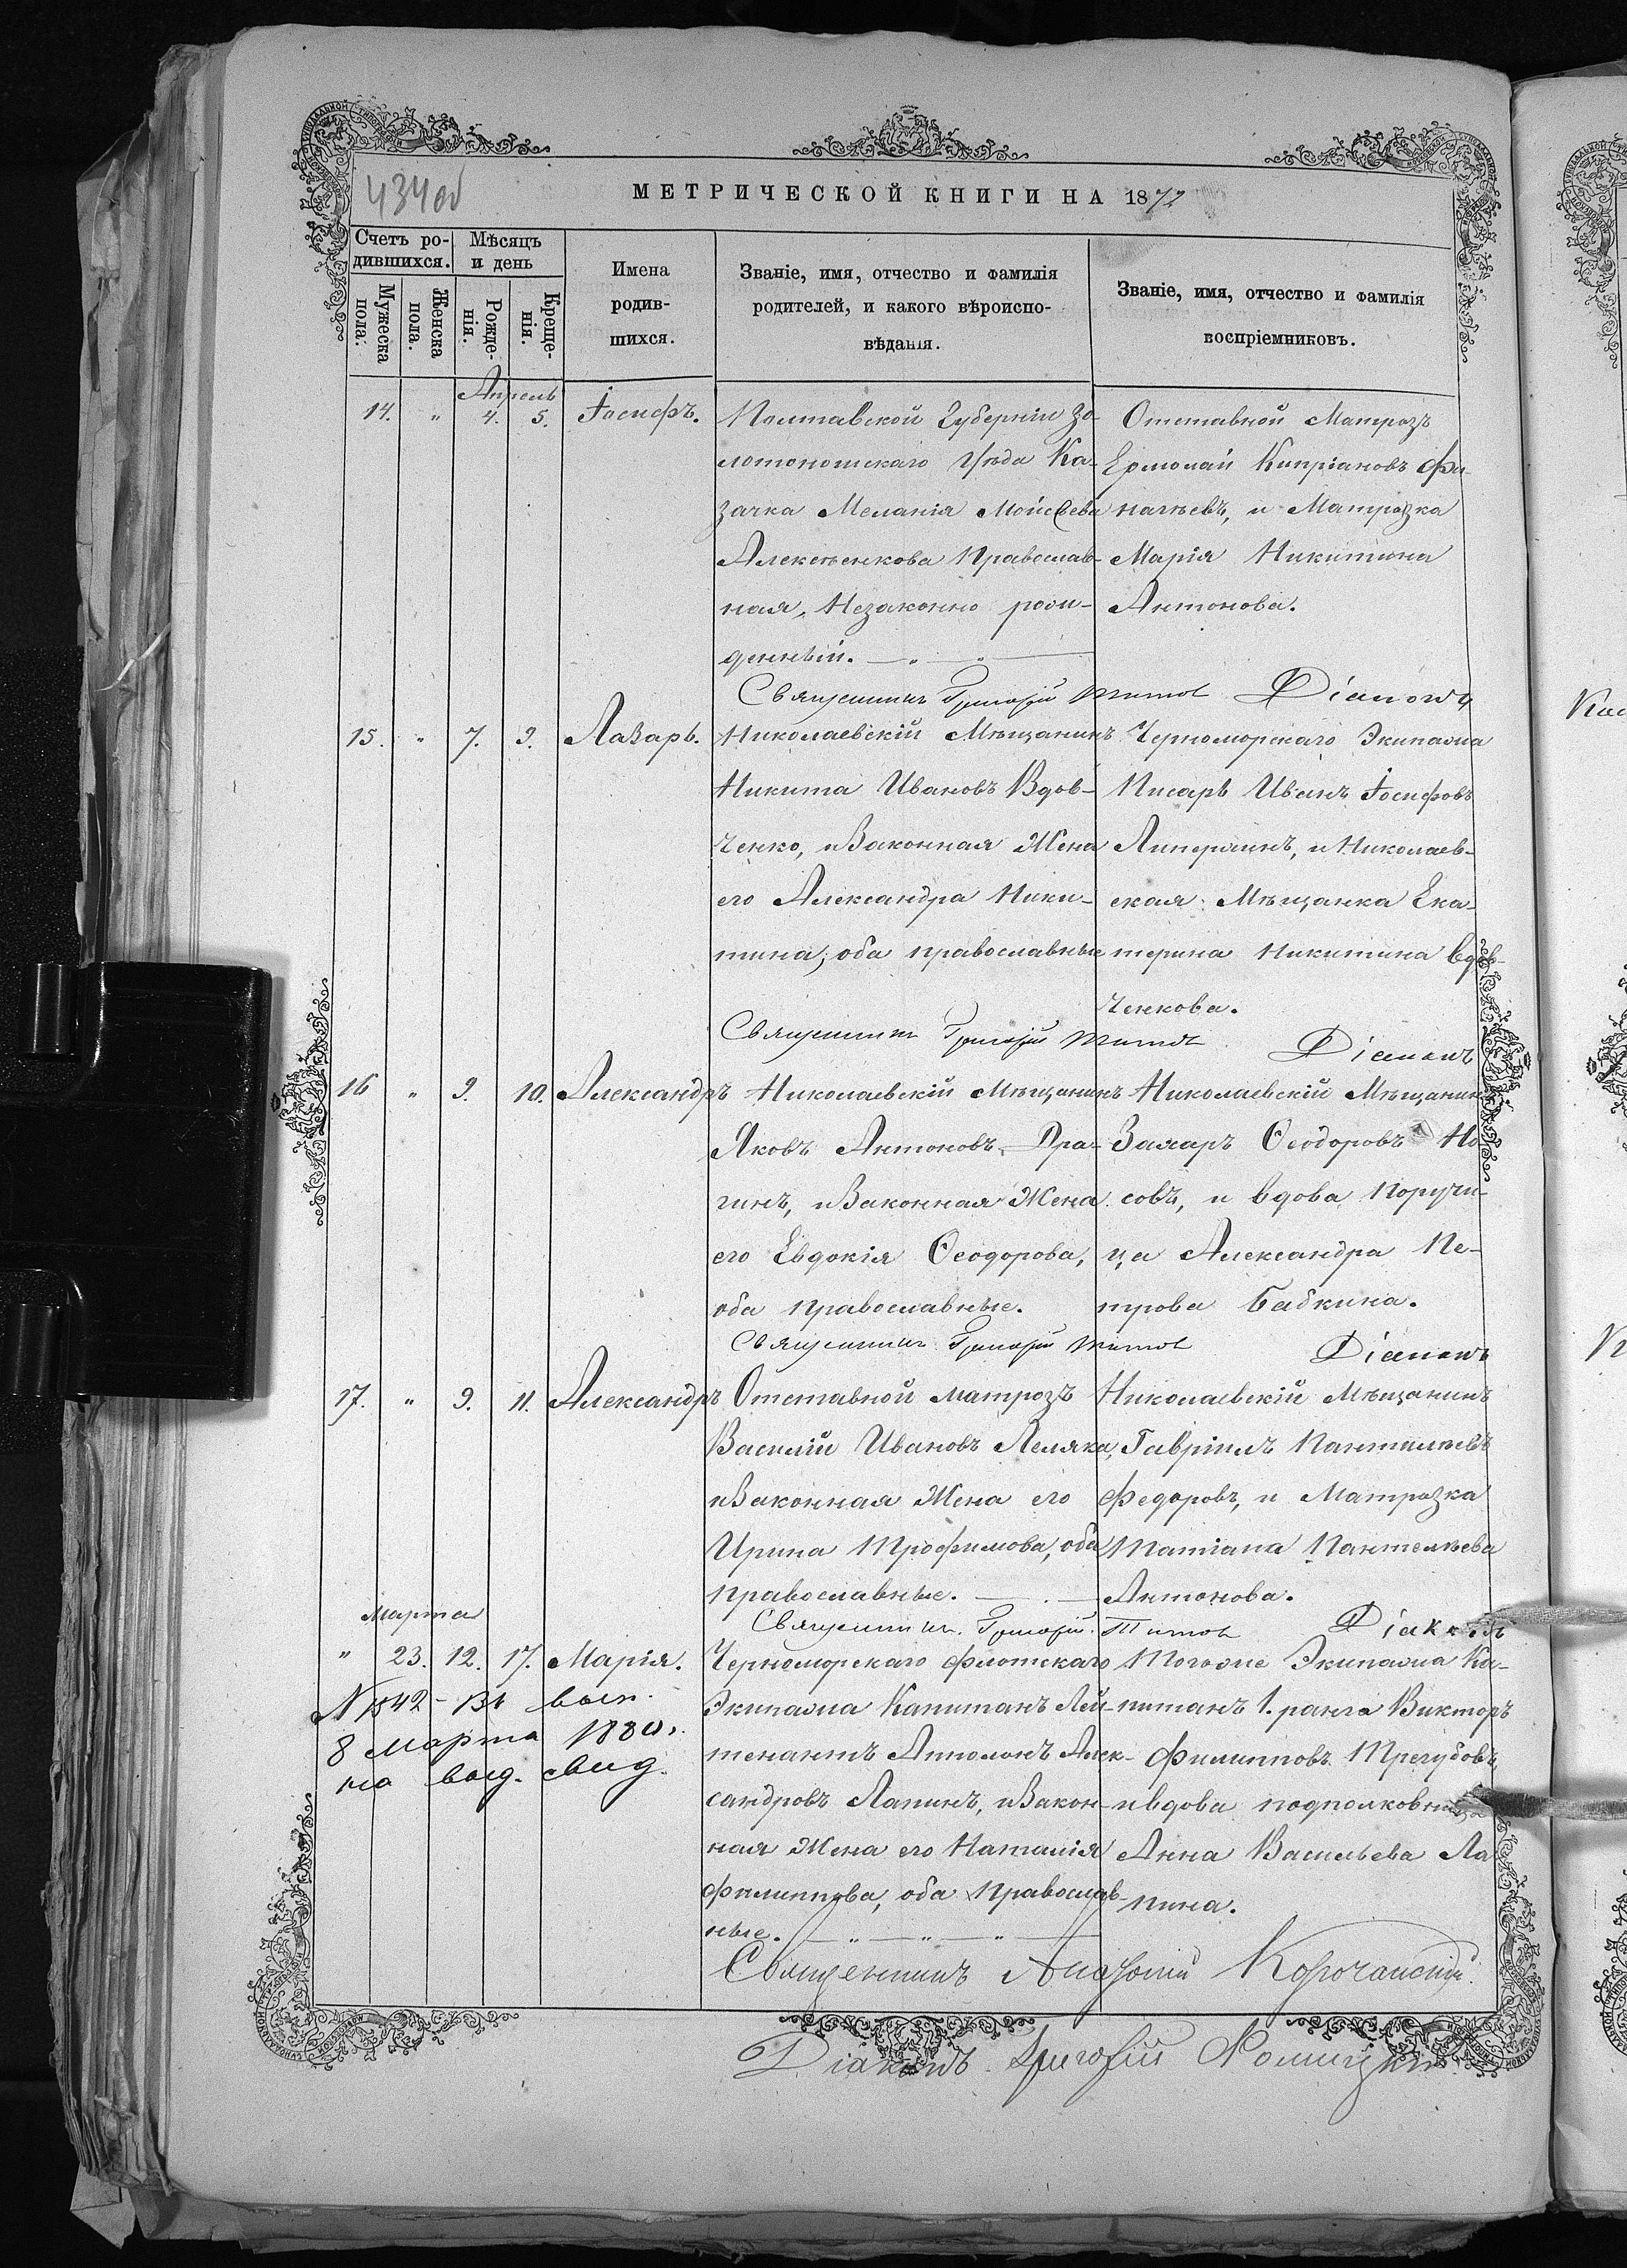 434 об
МЕТРИЧЕСКОЙ КНИГИ НА 1872
Счетъ ро-
дившихся.
Мужеска пола.
Женска пола.
Мѣсяцъ
и день
Рожде-
нія.
Креще-
нія.
Имена
родив-
шихся.
Званіе, имя, отчество и фамилія
родителей, и какого вѣроиспо-
вѣданія.
Званіе, имя, отчество и фамилія
воспріемниковъ.
Апрель
14. " 4. 5. Іосифъ.
Полтавской Губерніи Зо-
лотоношскаго Уѣзда Ка-
зачка Меланія Мойсеева
Алексѣенкова Православ-
ная, Незаконно рож-
денный.
Отставной Матрозъ
Ермолай Кипріановъ Фи-
нагѣевъ, и Матрозка
Марія Никитина
Антонова.
Священникъ Григорій Титов Діаконъ
15. " 7. 9. Лазарь.
Николаевскій Мѣщанинъ
Никита Ивановъ Вдов-
ченко, и Законная Жена
его Александра Ники-
тина, оба православные
Черноморскаго Экипажа
Писарь Иванъ Іосифовъ
Липерлинъ, и Николаев-
ская Мѣщанка Ека-
терина Никитина Вдов-
ченкова.
Священникъ Григорій Титов Діаконъ
16 " 9. 10. Александръ
Николаевскій Мѣщанинъ
Яковъ Антоновъ Дра-
гинъ, и Законная Жена
его Евдокія Ѳеодорова,
оба православные.
Николаевскій Мѣщанинъ
Захаръ Ѳеодоровъ Но-
совъ, и вдова Поручи-
ца Александра Пе-
трова Бабкина.
Священникъ Григорій Титов Діаконъ
17. " 9. 11. Александръ
Отставной матрозъ
Василій Ивановъ Леляка,
и Законная Жена его
Ирина Трофимова, оба
православные.
Николаевскій Мѣщанинъ
Гавріилъ Пантилѣевъ
Федоровъ, и Матрозка
Татіана Пантелѣева
Антонова.
Священникъ Григорій Титов Діаконъ
Марта
" 23. 12. 17. Марія.
Черноморскаго Флотскаго
Экипажа Капитанъ Лей-
тенантъ Апполонъ Алек-
сандровъ Лапинъ, и Закон-
ная Жена его Наталія
Филиппова, оба Православ-
ные.
Того же Экипажа Ка-
питанъ 1. ранга Викторъ
Филипповъ Трегубовъ,
и вдова подполковница
Анна Васильева Ла
пина.
№ 1542
8 Марта 1880.
на выд. свид.
Священникъ Корочанскій
Діаконъ Григорій